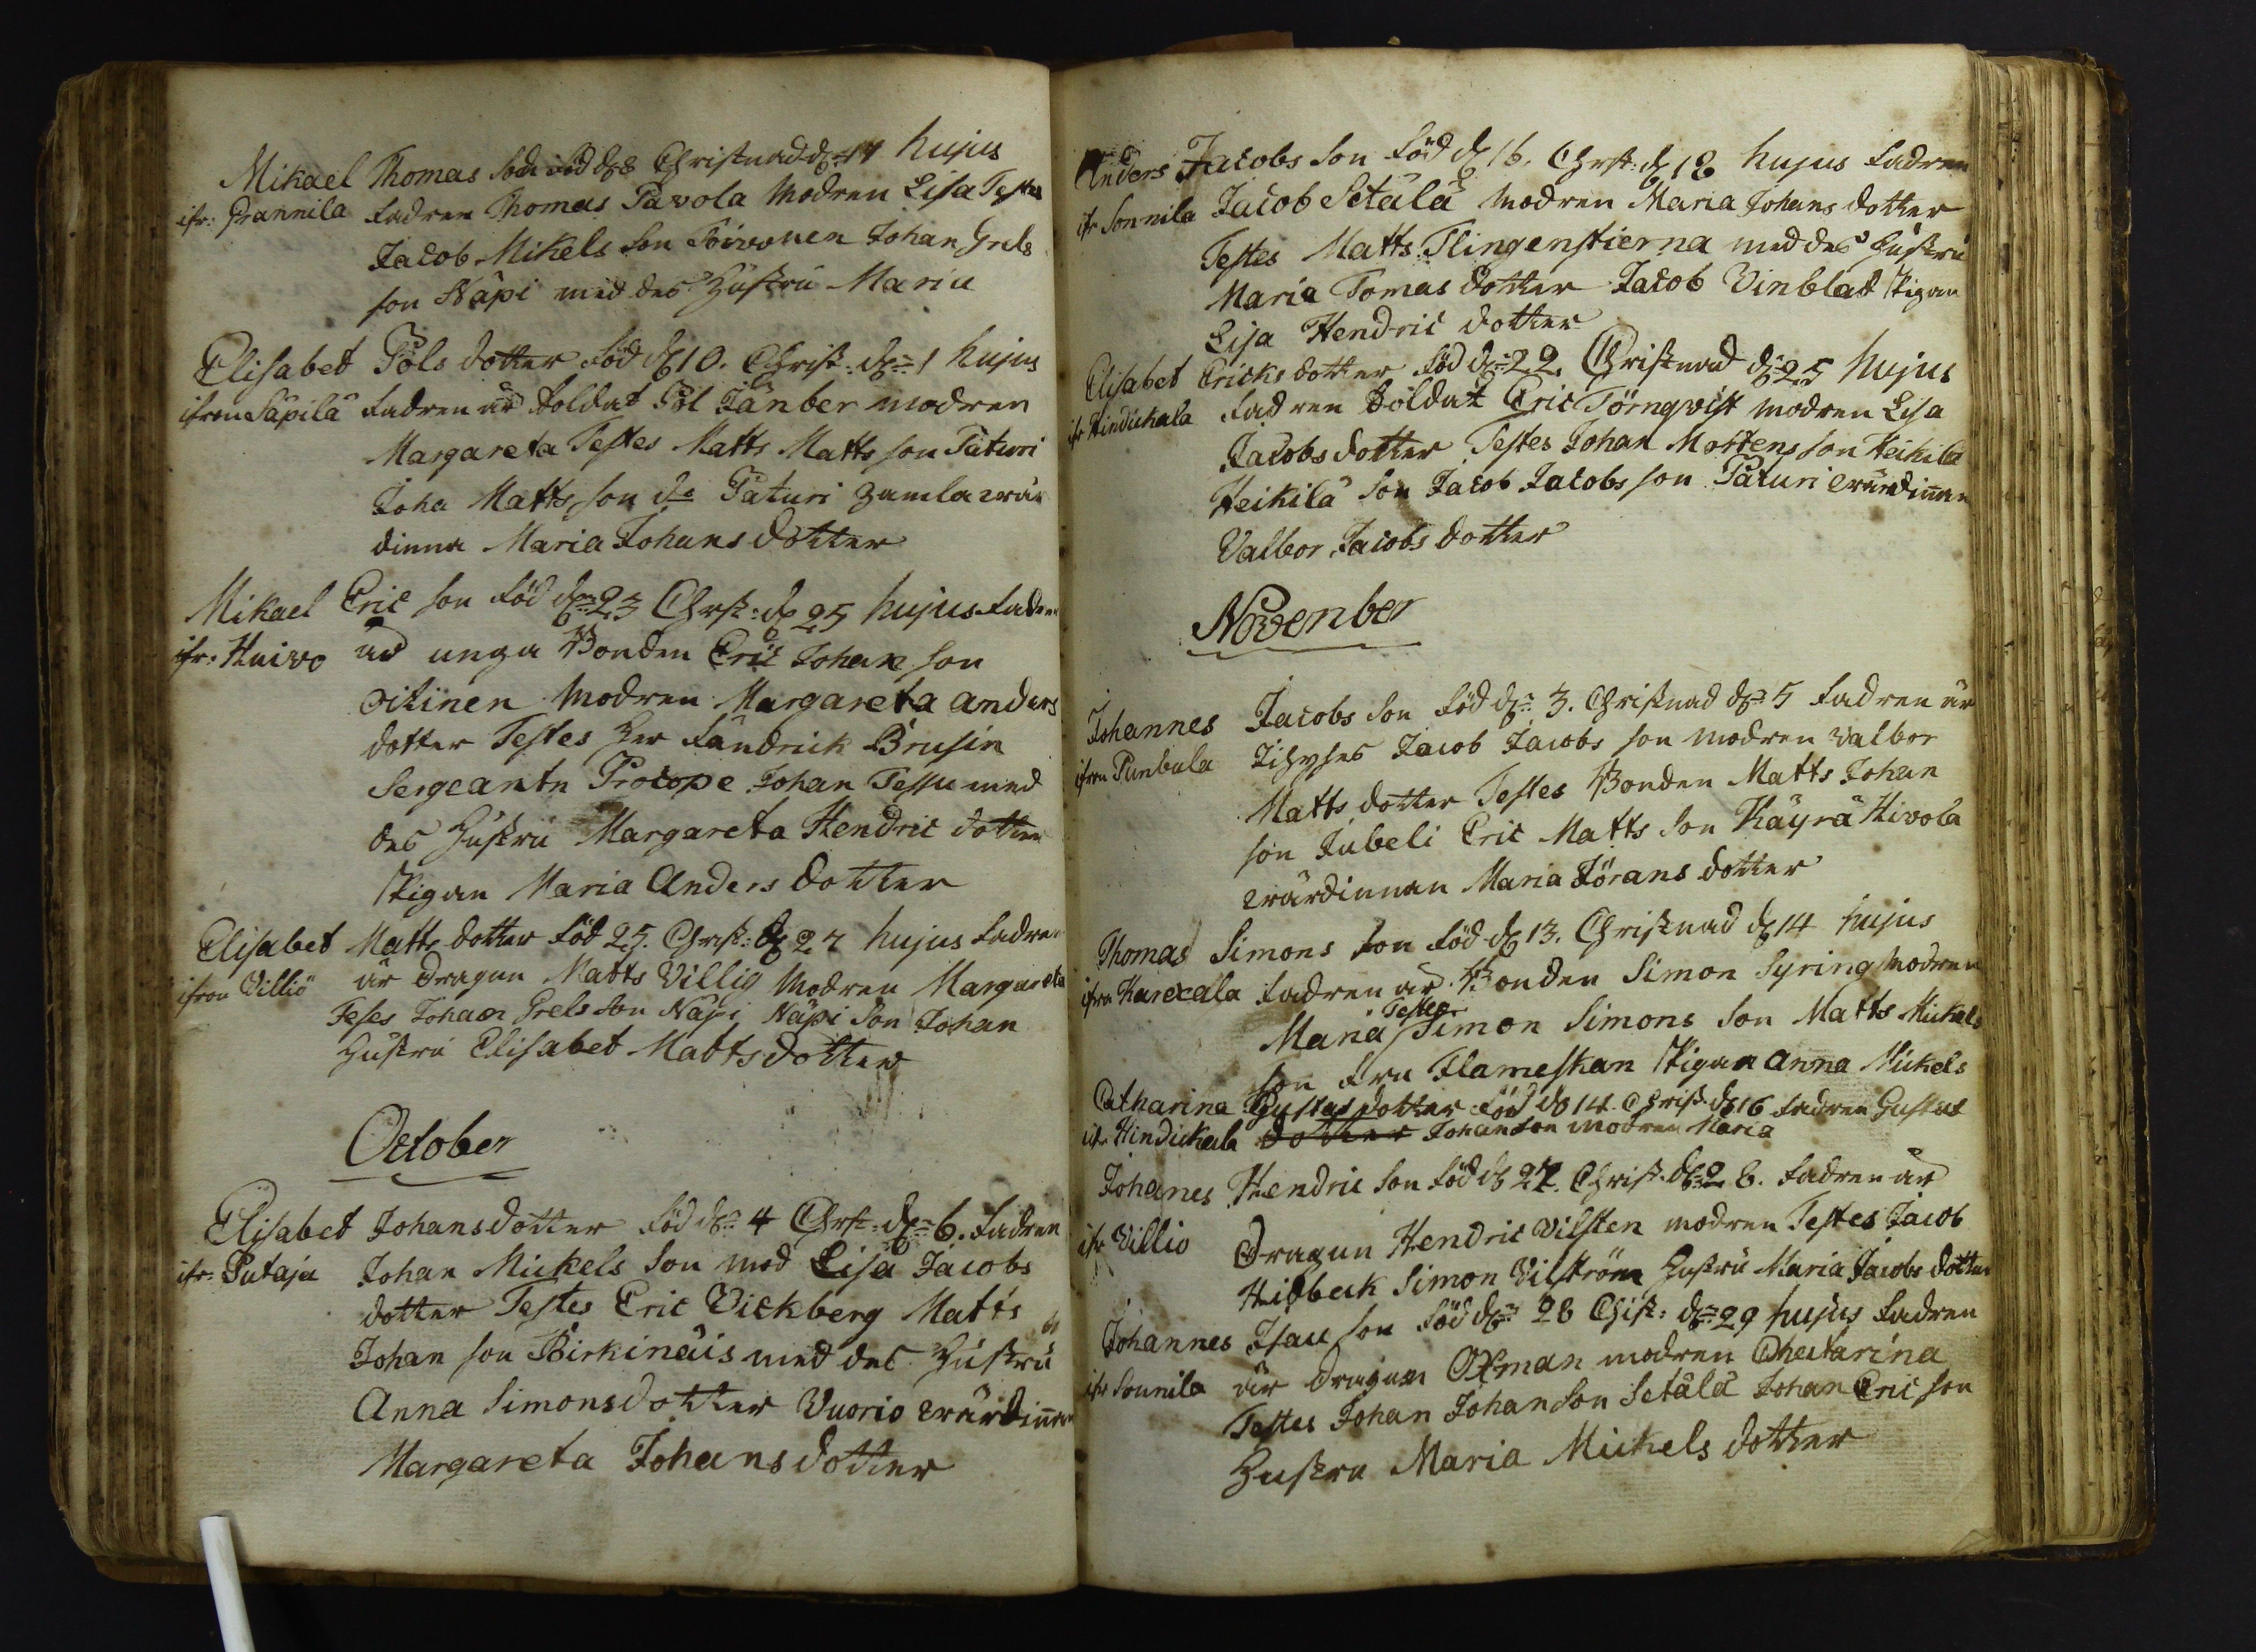 Mikael Thomas Son död d 8 Christnad d 14 hujus
ifr: Grannila Fadren Thomas Pavola Modren Lisa Testes
Jacob Mikels Son Toivonen Johan Grels
son Näpi med des Hustru Maria
Elisabet Pols dotter född d 10. Christ: d 1 hujus
ifron Säpilä Fadren är Soldat Pol Jänber modren
Margareta Testes Matts Matts son Päturi
Joha Matts son do Päturi gamla wär
dinna Maria Johans dotter
Mikael Eric son föd d 23 Chrst: d 25 hujus Fadren
ifr: Huivo är unga Bonden Eric Johan son
Oitinen Modren Margareta Anders
dotter Testes Her Fändrick Brusin
Sergeanten Procope Johan Tessu med
des Hustru Margareta Hendric dotter
Pigan Maria Anders dotter
Elisabet Matts dotter föd 25. Christ: d 27 hujus Fadren
ifron Villiö är Dragun Matts Villig Modren Margareta
Teses Johan Grels Son Näpi Näpi Son Johan
Hustru Elisabet Matts dotter
October
Elisabet Johansdotter föd d 4 Chrst: d 6. Fadren
ifr: Putaja Johan Mickels Son mod Lisa Jacobs
dotter Testes Eric Vickberg Matts
Johan son Birkinäis med des Hustru
Anna Simonsdotter Vuorio wärdinnan
Margareta Johans dotter
Anders Jacobs Son född d 16. Chrst: d 18 hujus Fadren
ifr Sonnila Jacob Setälä Modren Maria Johans dotter
Testes Matts Flingenstierna med des Hustru
Maria Tomas dotter Jacob Vinblad Pigan
Lisa Hendric dotter
Elisabet Ericks dotter född d 22. Christnad d 25 hujus
ifr Hindickala Fadren Soldat Eric Törnqvist modren Lisa
Jacobs dotter Testes Johan Mortens son Heikilä
Heikilä Son Jacob Jacobs son Päturi wärdinnan
Valbor Jacobs dotter
November
Johannes Jacobs Son född d 3. Christnad d 5 Fadren är
ifron Punbula Jacob Jacobs son modren Valbor
Matts dotter Testes Bonden Matts Johan
son Jubeli Eric Matts Son Käyrä Hivola
wärdinnan Maria Jörans dotter
Thomas Simons Son född d 13. Christnad d 14 hujus
ifron Karexela Fadren är Bonden Simon Syring Modren
Maria Testes Simon Simons Son Matts Mickels
son Fru Flameskan Pigan Anna Mickels
Catharina Gustas dotter född d 14. Christ d 16 Fadren Gustat
ifr Hindickala dotter Johanson modren Maria
Johanes Hendric Son född d 27. Christ. d 28. Fadren är
ifr Villio Dragun Hendric Vilsten modren Testes Jacob
Heidbeck Simon Vilström Hustru Maria Jacobs dotter
Johannes Isac son född d 28 Chist: d 29 hujus Fadren
ifr Sonnila är dragun Oxman modren Chestarina
Testes Johan Johanson Setälä Johan Eric son
Hustru Maria Mickels dotter